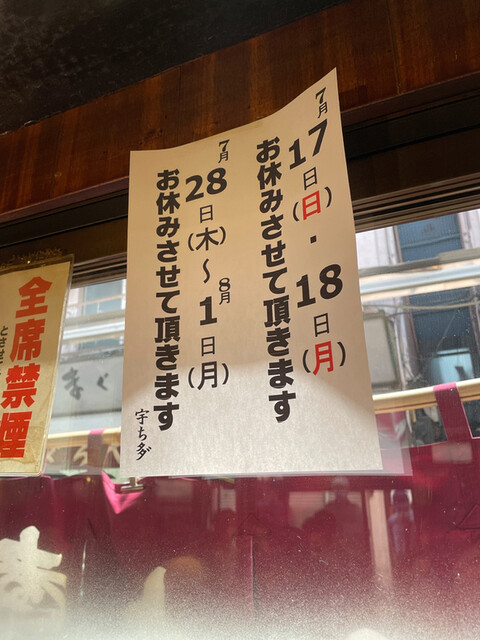 7月17日(日)・18日(月)
お休みさせて頂きます
7月28日(木)〜8月1日(月)
お休みさせて頂きます
宇ち多゛
全席禁煙
とさせ